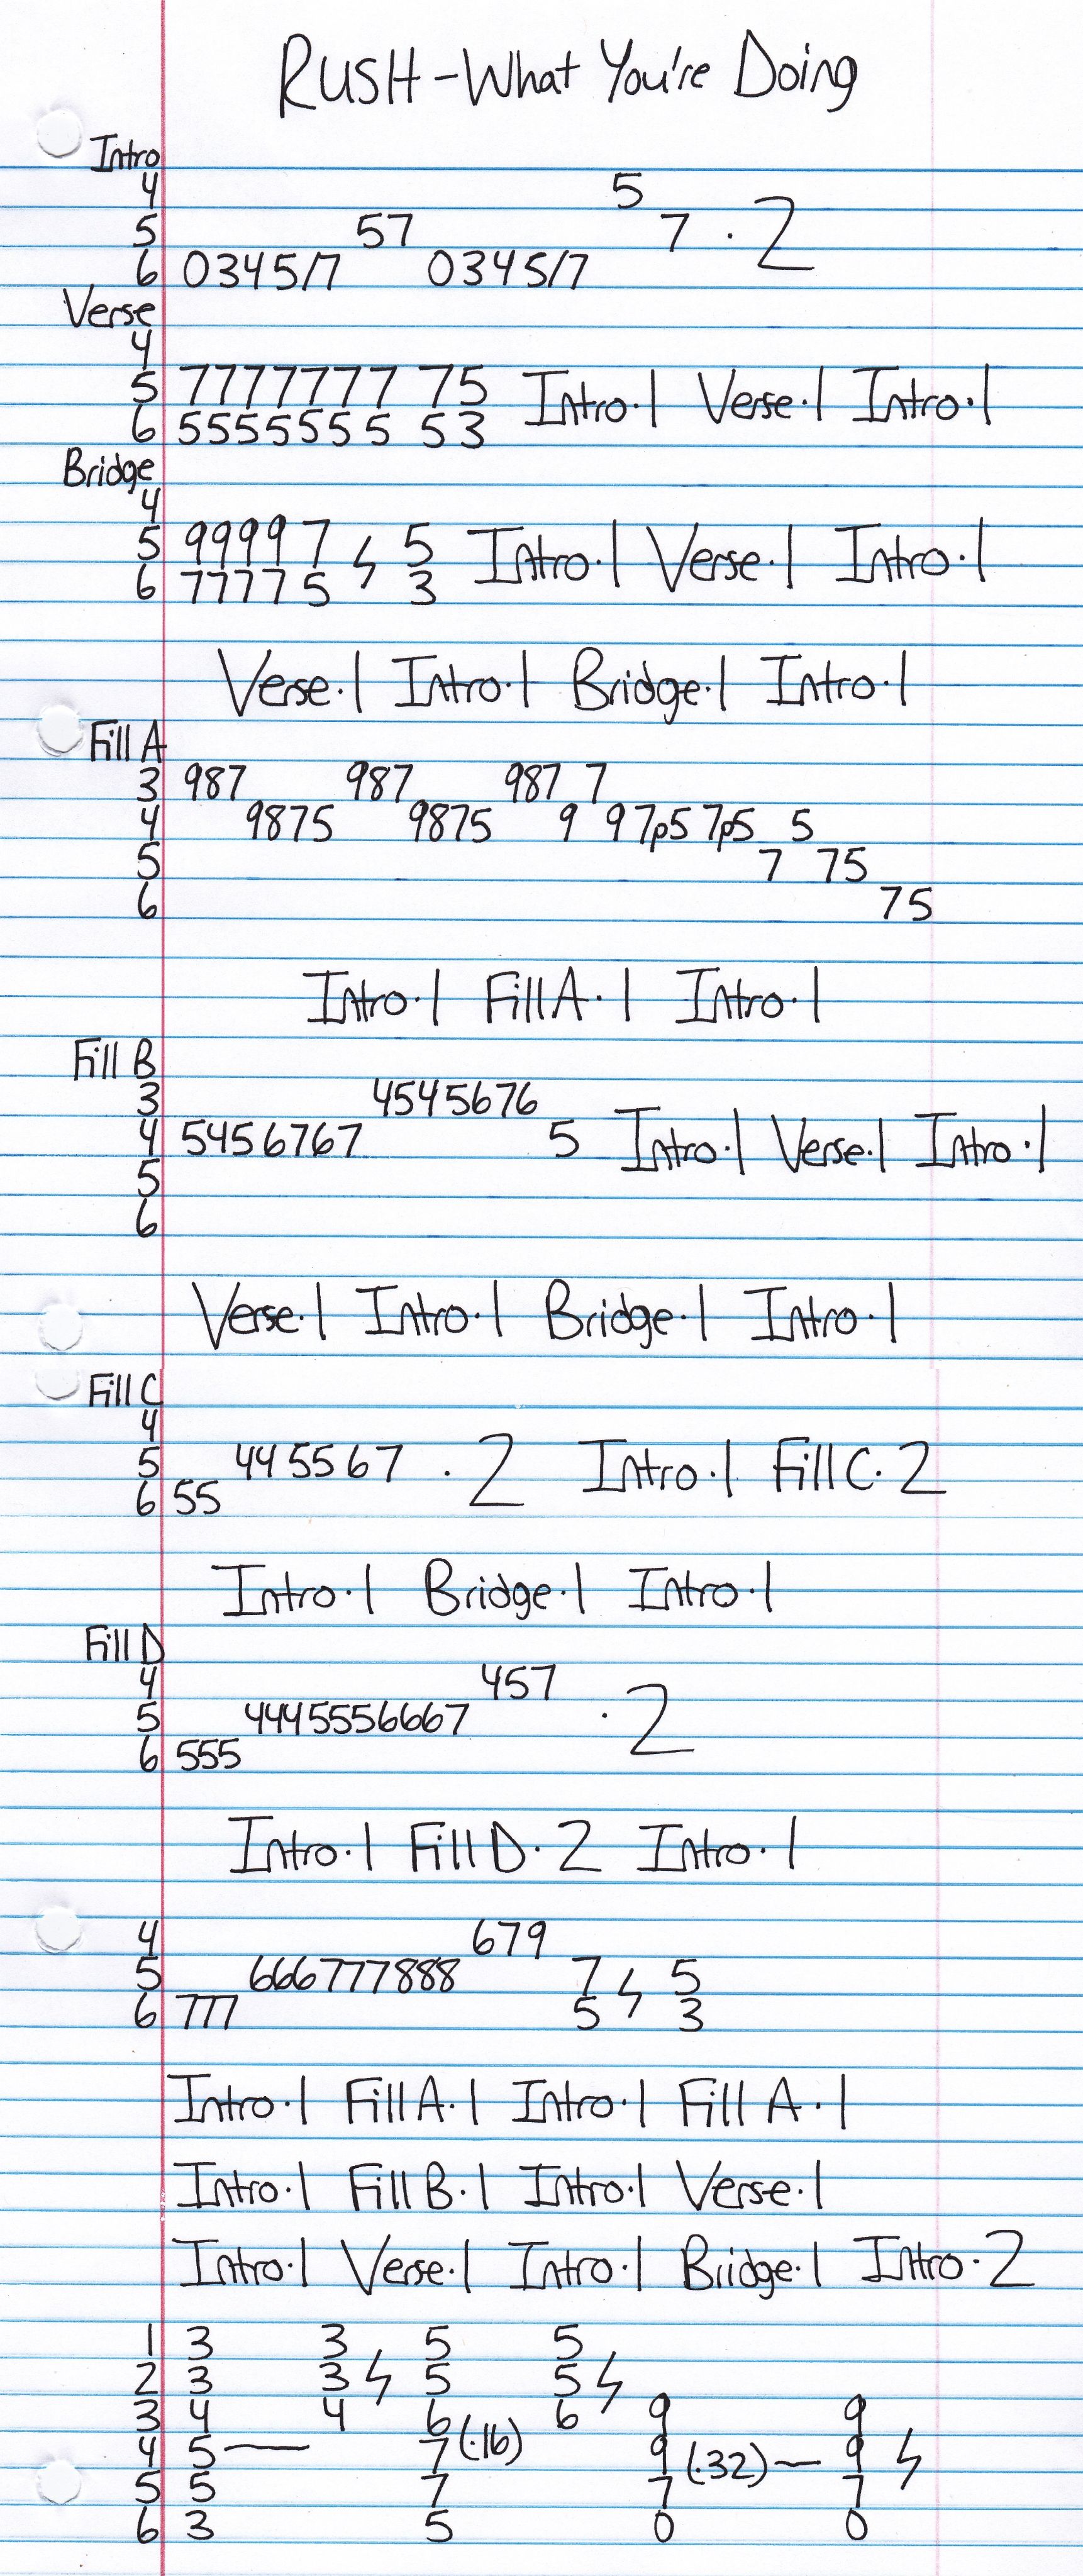 RUSH - What You're Doing
Intro
4 5
5 57 7 · 2
6 0345/7 0345/7
Verse
4
5 7777777 75 Intro·1 Verse·1 Intro·1
6 5555555 53
Bridge
4
5 99997 ϟ 5 Intro·1 Verse·1 Intro·1
6 77775 3
Verse·1 Intro·1 Bridge·1 Intro·1
Fill A
3 987 987 987 7
4 9875 9875 9 97p5 7p5 5
5 7 75
6 75
Intro·1 Fill A·1 Intro·1
Fill B
3 4545676
4 5456767 5 Intro·1 Verse·1 Intro·1
5
6
Verse·1 Intro·1 Bridge·1 Intro·1
Fill C
4
5 445567 · 2 Intro·1 Fill C·2
6 55
Intro·1 Bridge·1 Intro·1
Fill D
4 457
5 4445556667 · 2
6 555
Intro·1 Fill D·2 Intro·1
4 679
5 666777888 7 ϟ 5
6 777 5 3
Intro·1 Fill A·1 Intro·1 Fill A·1
Intro·1 Fill B·1 Intro·1 Verse·1
Intro·1 Verse·1 Intro·1 Bridge·1 Intro·2
1 3 3 5 5
2 3 3 ϟ 5 5 ϟ
3 4 4 6 6 9 9
4 5 — 7 (·16) 9 (·32) — 9 ϟ
5 5 7 7 7
6 3 5 0 0